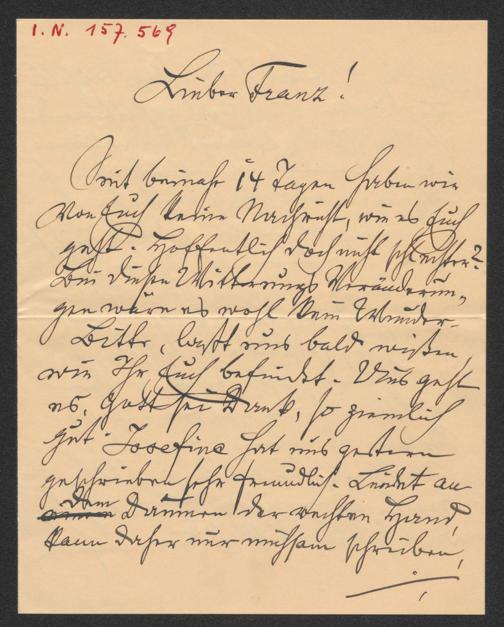 I. N. 157.569
Lieber Franz!
Seit beinahe 14 Tagen haben wir
von Euch keine Nachricht, wie es Euch
geht. Hoffentlich doch nicht schlechter?
Bei diesen Witterungs Veränderun-
gen wäre es wohl kein Wunder.
Bitte, laßt uns bald wissen,
wie Ihr Euch befindet. Uns geht
es, Gott sei Dank, so ziemlich
gut. Josefine hat uns gestern
geschrieben sehr freundlich. Leidet an
dem Daumen der rechten Hand,
kann daher nur mühsam schreiben,